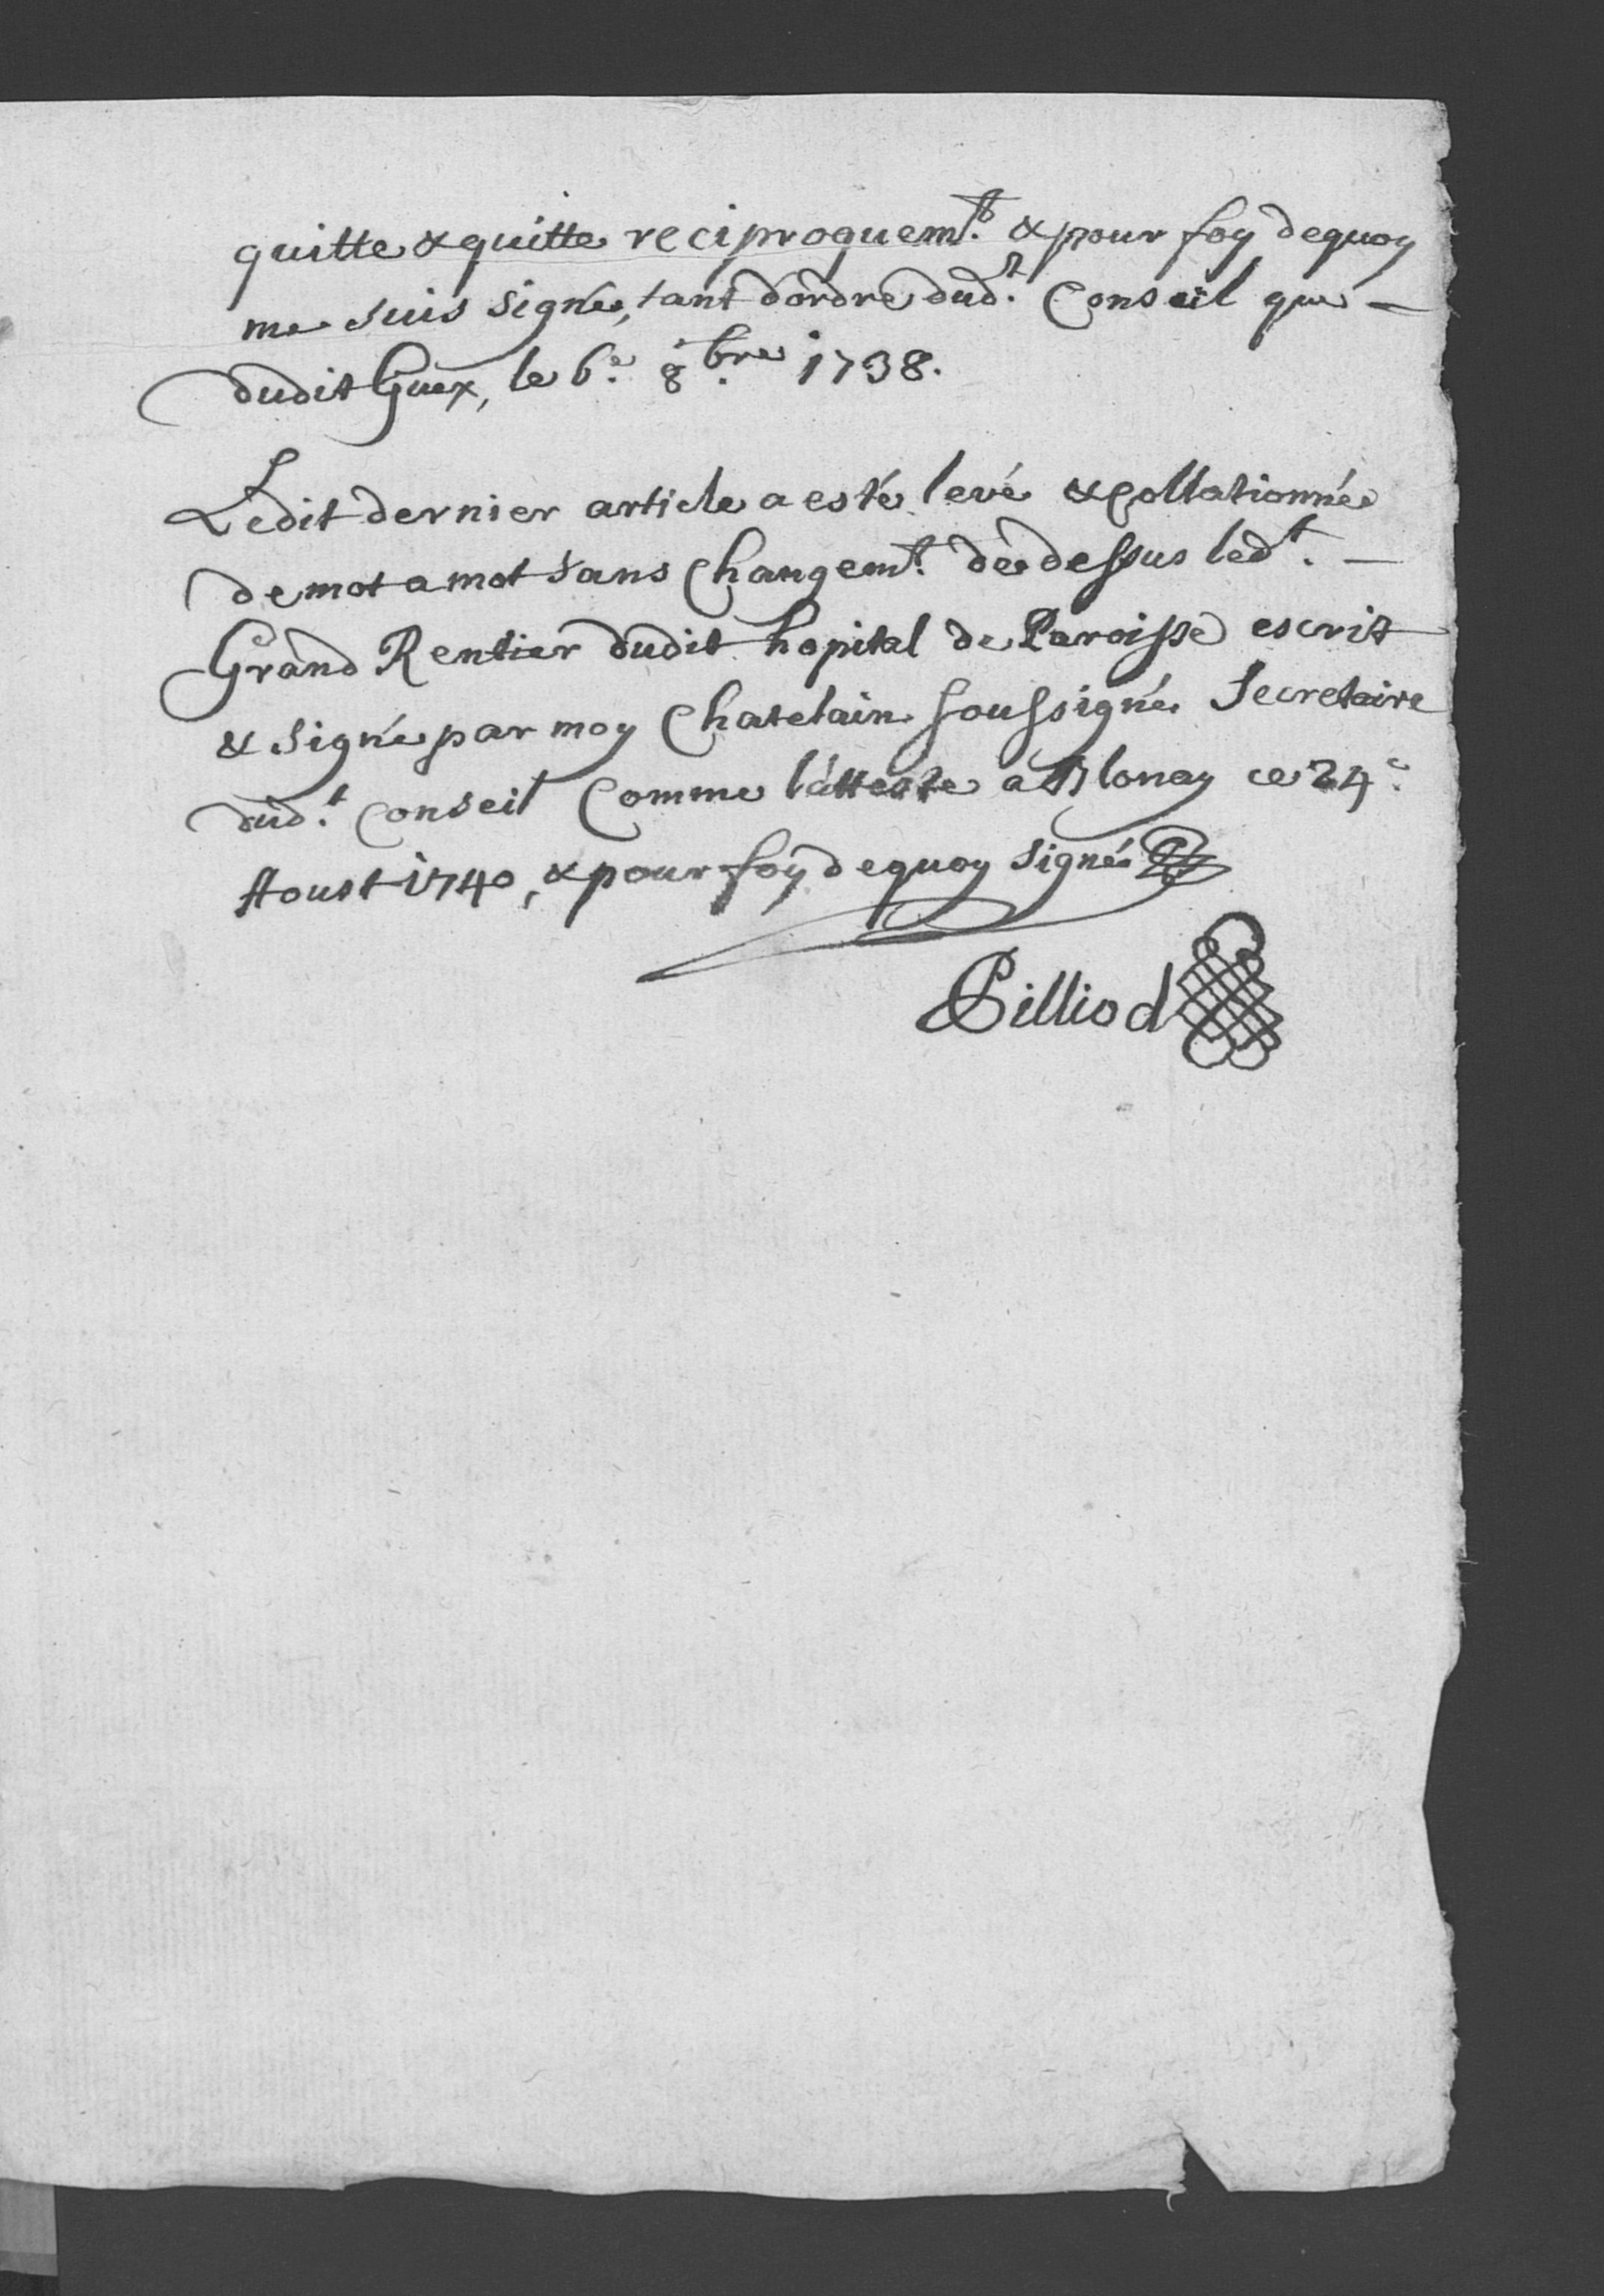 quitte & quitte reciproquemt. & pour foy dequoy
me suis signé, tant dordre dudt. Conseil que –
dudit Guex, le 6e. 8bre. 1738.
Ledit dernier article a esté levé & Collationné
de mot a mot sans Changemt. de dessus ledt. –
Grand Rentier dudit hopital de Paroisse escrit
& signé par moy Chatelain soussigné Secretaire
dudt. Conseil Comme l'atteste a Blonay ce 24e.
Aoust 1740, & pour foy dequoy signé
Pilliod